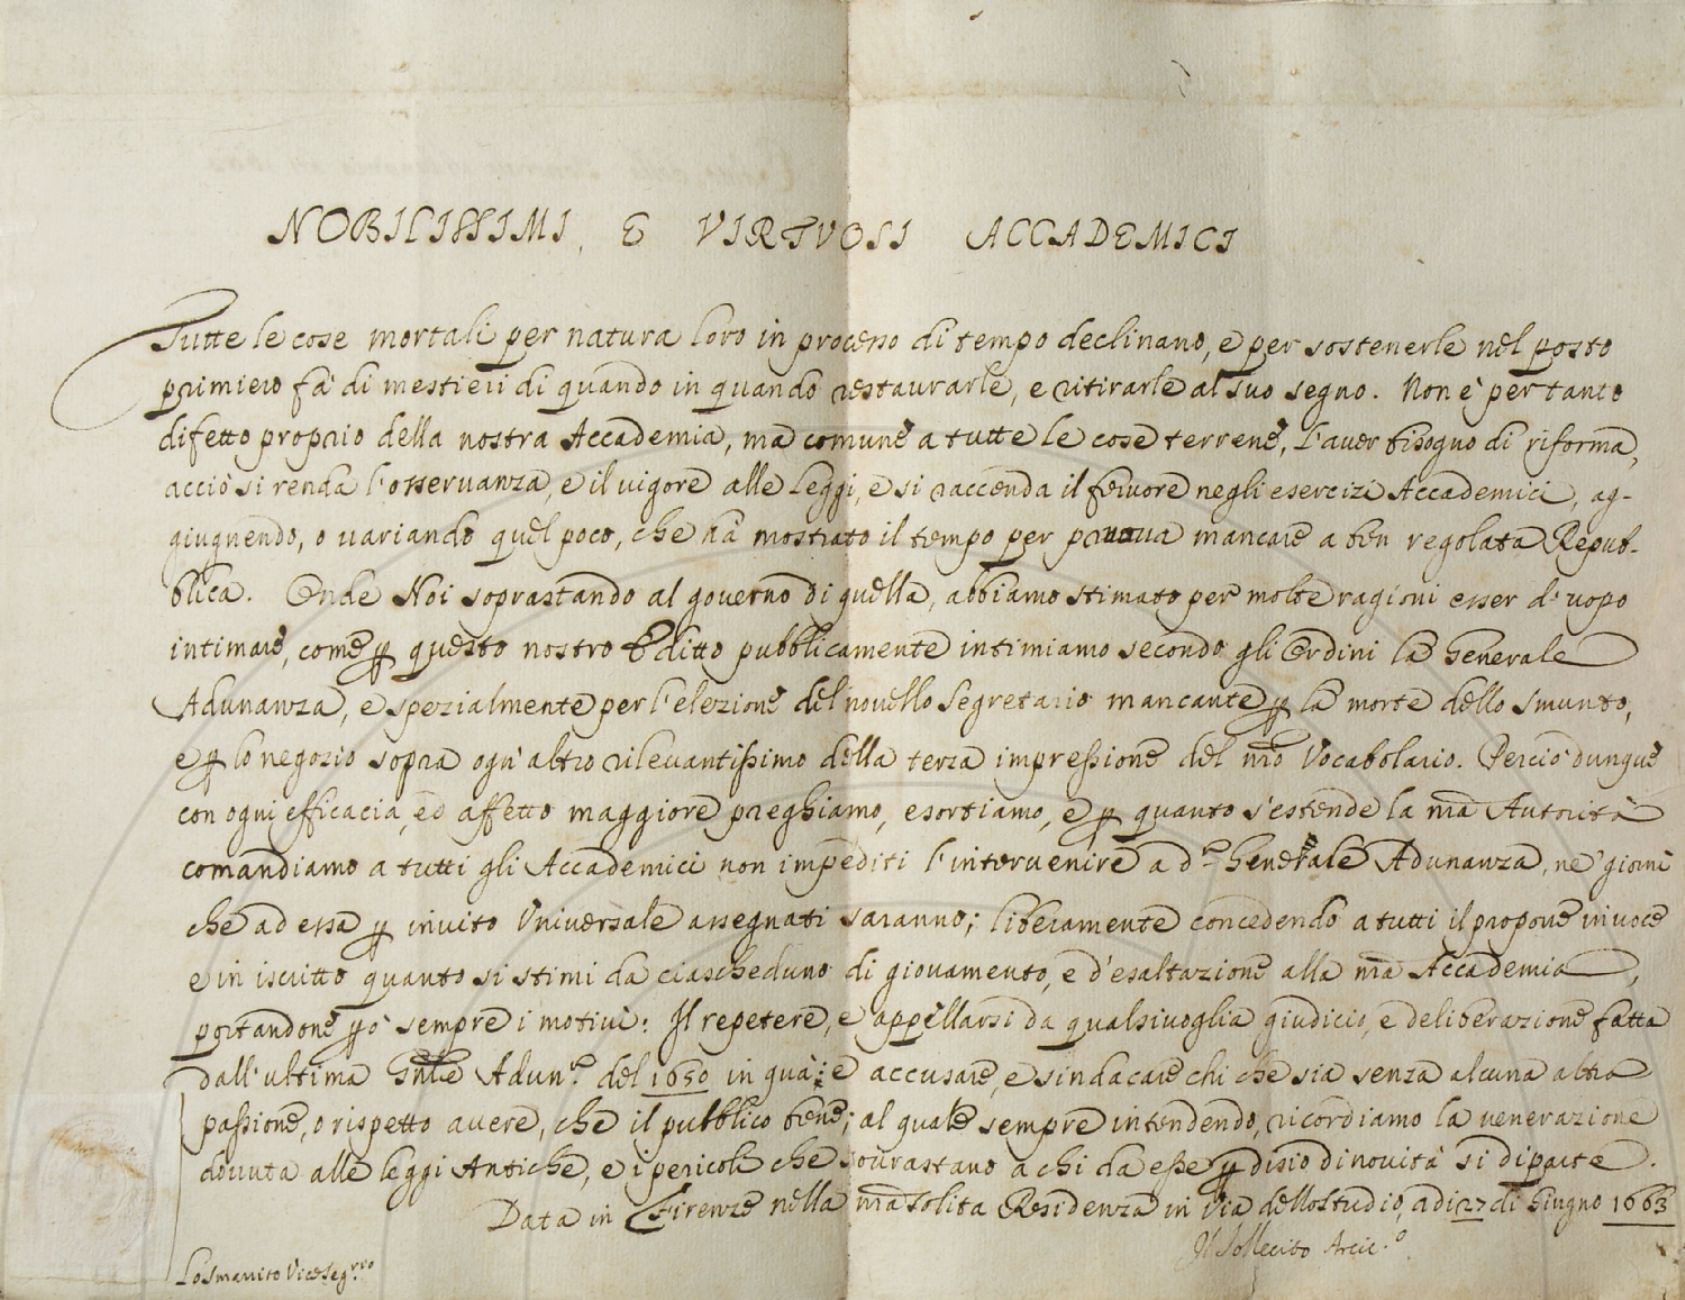 NOBILISSIMI, E VIRTVOSI ACCADEMICI
Tutte le cose mortali per natura loro in processo di tempo declinano, e per sostenerle nel posto
primiero fà di mestieri di quando in quando restaurarle, e ritirarle al suo segno. Non è per tanto
difetto proprio della nostra Accademia, ma comune a tutte le cose terrene, l'auer bisogno di riforma,
acciò si renda l'osseruanza, e il uigore alle Leggi, e si raccenda il feruore negli esercizi Accademici, ag-
giugnendo, o uariando quel poco, che hà mostrato il tempo per pruoua mancare a ben regolata Repub-
blica. Onde Noi soprastando al gouerno di quella, abbiamo stimato per molte ragioni esser d'uopo
intimare, come ꝑ questo nostro Editto pubblicamente intimiamo secondo gli Ordini la Generale
Adunanza, e spezialmente per l'elezione del nouello Segretario mancante ꝑ la morte dello Smunto,
e ꝑ lo negozio sopra ogn'altro rileuantissimo della terza impressione del nr̃o Vocabolario. Perciò dunque
con ogni efficacia, ed affetto maggiore preghiamo, esortiamo, e ꝑ quanto s'estende la nr̃a Autorità
comandiamo a tutti gli Accademici non impediti l'interuenire a d.ᵃ Generale Adunanza, ne' giorni
che ad essa ꝑ inuito Vniuersale assegnati saranno; liberamente concedendo a tutti il proporre in uoce
e in iscritto quanto si stimi da ciascheduno di giouamento, e d'esaltazione alla nr̃a Accademia,
portandone ꝑò sempre i motiui: Il repetere, e appellarsi da qualsiuoglia giudicio, e deliberazione fatta
dall'ultima Gn̄le Adun.ᵃ del 1650 in quà: e accusare, e sindacare chi che sia senza alcuna altra
passione, o rispetto auere, che il pubblico bene; al quale sempre intendendo, ricordiamo la uenerazione
douuta alle leggi Antiche, e i pericoli che sourastano a chi da esse ꝑ disio di nouità si diparte.
Data in Firenze nella nr̃a solita Residenza in Via dello Studio, adi 27 di Giugno 1663
Il Sollecito Arcic.º
Lo Smarrito Vicesegʳⁱᵒ